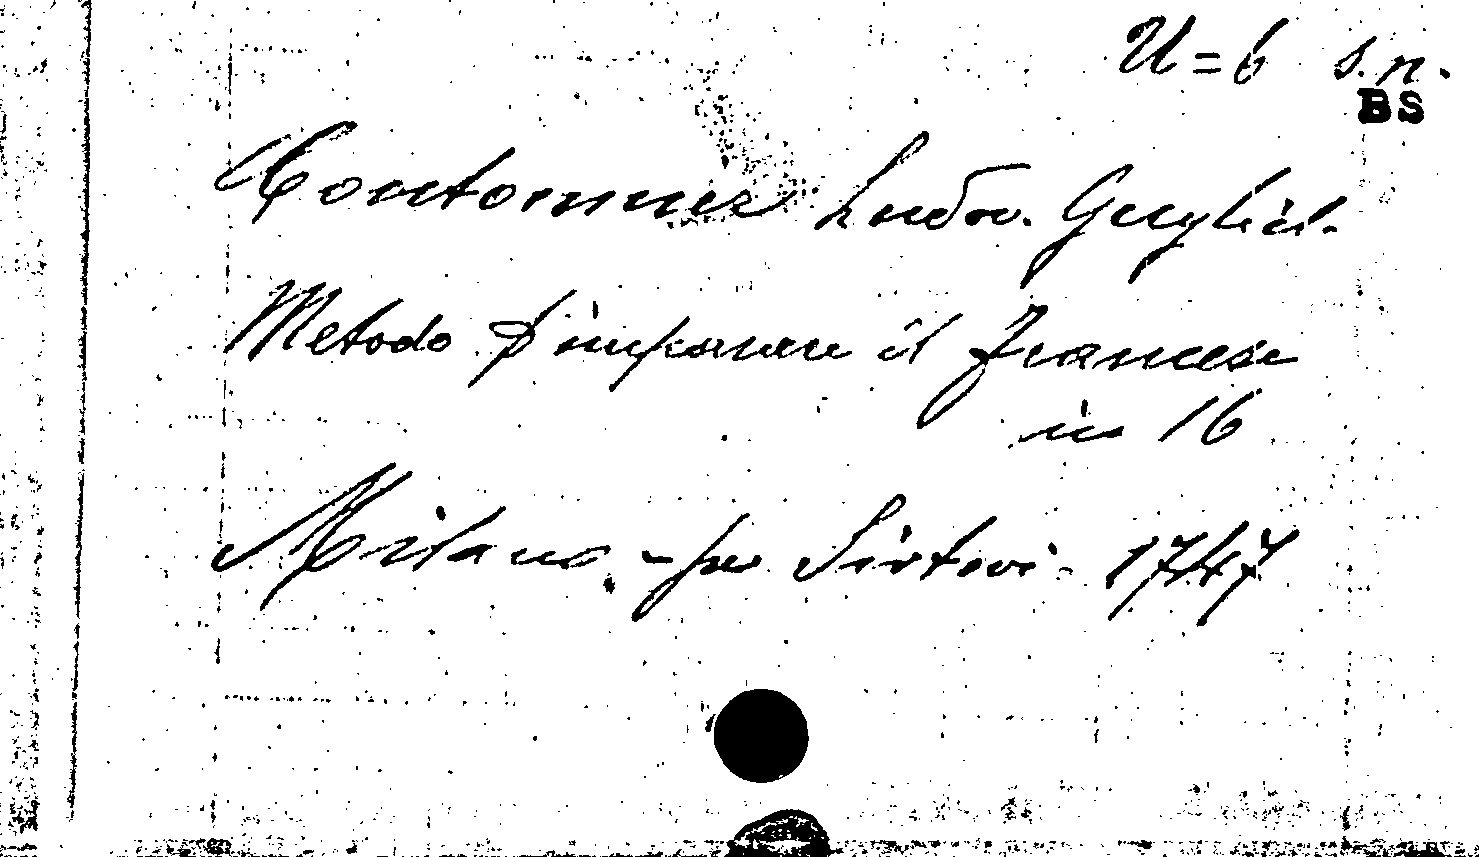 U=6 s.n.
BS
Contonnier Ludov. Gugliel.
Metodo d'imparare il Francese
in 16
Milano - per Sirtori - 1747